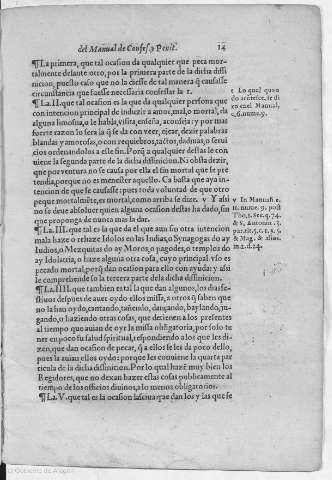 del Manual de Confes. y Penit. 14
¶ La primera, que tal ocasion da qualquier que peca mor-
talmente delante otro, por la primera parte de la dicha diffi-
nicion, puesto caso que no la diesse de tal manera q̃ causasse
circunstancia que fuesse necessaria confessar la t.
¶ La. II. que tal ocasion es la que da qualquier persona que
con intencion principal de induzir a amor, mal, o mortal, da
alguna limosna, o le habla, visita, enseña, aconseja: y por mas
fuerte razon lo sera la q̃ se da con veer, ojear, dezir palabras
blandas y amorosas, o con requiebros, tactos, dadiuas, o serui
cios ordenandolos a esse fin. Porq̃ a qualquier destas le con
uiene la segunda parte de la dicha diffinicion. Ni obsta dezir,
que por ventura no se causa por ella el fin mortal que se pre
tendia, porque no es menester aquello. Ca basta que aya in-
tencion de que se causasse: pues toda voluntad de que otro
peque mortalmẽte, es mortal, como arriba se dize. v Y assi
no se deue absoluer quien alguna ocasion destas ha dado, sin
que proponga de nunca mas la dar.
¶ La. III. que tal es la que da el que aun sin otra intencion
mala haze o rehaze Idolos en las Indias, o Synagogas do ay
Iudios, o Mezquitas do ay Moros, o pagodes, o templos do
ay Idolatria, o haze alguna otra cosa, cuyo principal vso es
pecado mortal, porq̃ dan ocasion para ello con ayuda: y assi
le comprehende so la tercera parte dela dicha diffinicion.
¶ La. IIII. que tambien es tal la que dan algunos, los dias fe-
stiuos despues de auer oydo ellos missa, a otros q̃ saben que
no la han oydo, cantando, tañendo, dançando, baylando, ju-
gando, o haziendo otras cosas, que detienen a los presentes
al tiempo que auian de oyr la missa obligatoria, por solo te
ner en poco su salud spiritual, respondiendo a los que les di-
zen, que dan ocasion de pecar, q̃ a ellos se les da poco dello,
pues la auian ellos oydo: porque les conuiene la quarta par
ticula de la dicha diffinicion. Por lo qual hazẽ muy bien los
Regidores, que no dexan hazer estas cosas publicamente al
tiempo de los officios diuinos, a lo menos obligatorios.
¶ La. V. que tal es la ocasion lasciua que dan los y las que se
t Lo qual quan
do acontesce, se di
xo en el Manual,
c. 6. nume. 9.
v In Manuali c.
© Gobierno de Aragón